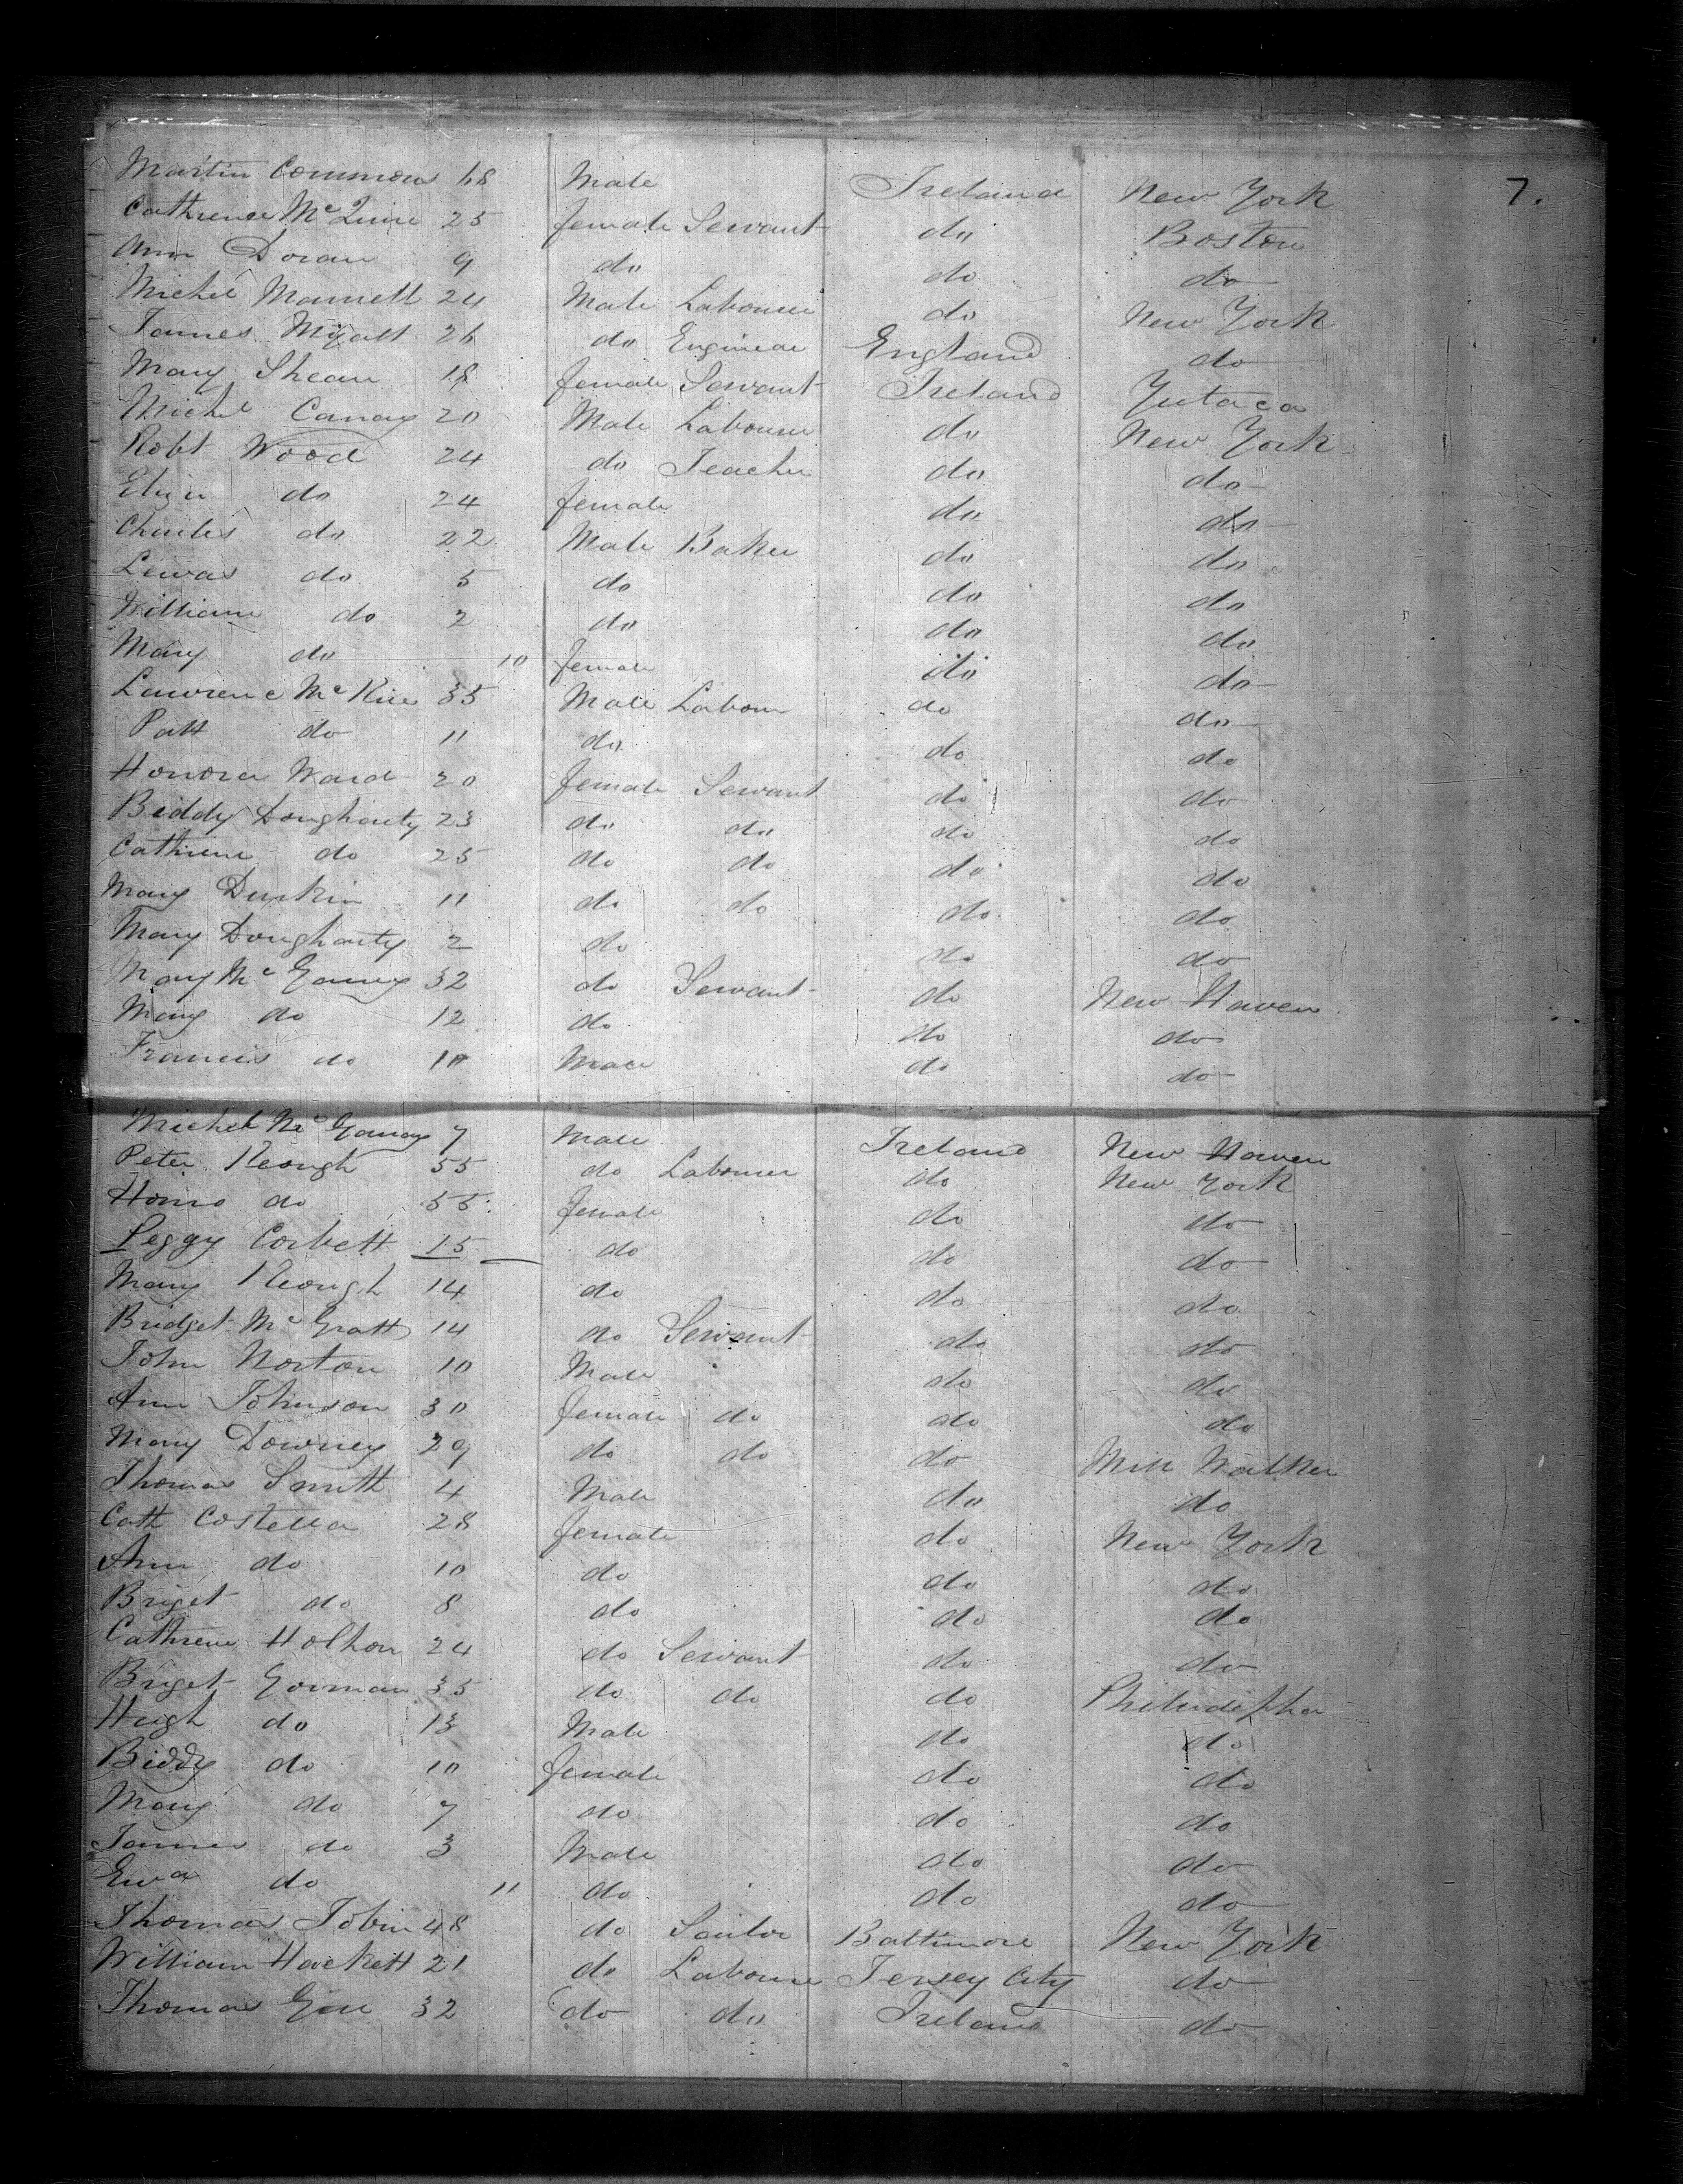 7.
Martin Common 68 Male Ireland New York
Cathrene McQuire 25 female Servant do Boston
Ann Doran 9 do do do
Michl Mannell 24 Male Labourer do New York
James Myatt 26 do Enginear England do
Mary Shean 18 female Servant Ireland Yutaca
Michl Canay 20 Male Labourer do New York
Robt Wood 24 do Teacher do do
Eliza do 24 female do do
Charles do 22 Male Baker do do
Lewas do 5 do do do
William do 2 do do do
Mary do 10 female do do
Lawrence McKue 35 Male Labour do do
Patt do 11 do do do
Honora Ward 20 female Servant do do
Beiddy Dougharty 23 do do do do
Cathrene do 25 do do do do
Mary Durkin 11 do do do do
Mary Dougharty 2 do do do
Mary McGaury 32 do Servant do New Haven
Mary do 12 do do do
Francis do 10 Male do do
Michel McGaray 7 Male Ireland New Haven
Peter Keough 55 do Labourer do New York
Honro do 55 female do do
Peggy Corbett 15 do do do
Mary Keough 14 do do do
Bridget McGratt 14 do Servant do do
John Norton 10 Male do do
Ann Johnson 30 female do do do
Mary Downey 29 do do do Milk Walker
Thomas Smith 4 Male do do
Catt Costella 28 female do New York
Ann do 10 do do do
Briget do 8 do do do
Cathrene Holhon 24 do Servant do do
Briget Gorman 35 do do do Philudelpha
Hugh do 13 Male do do
Biddy do 10 female do do
Mary do 7 do do do
James do 3 Male do do
do 11 do do do
Thomas Tobin 48 do Sailor Baltimore New York
William Hackett 21 do Labourer Jersey City do
Thomas 32 do do Ireland do